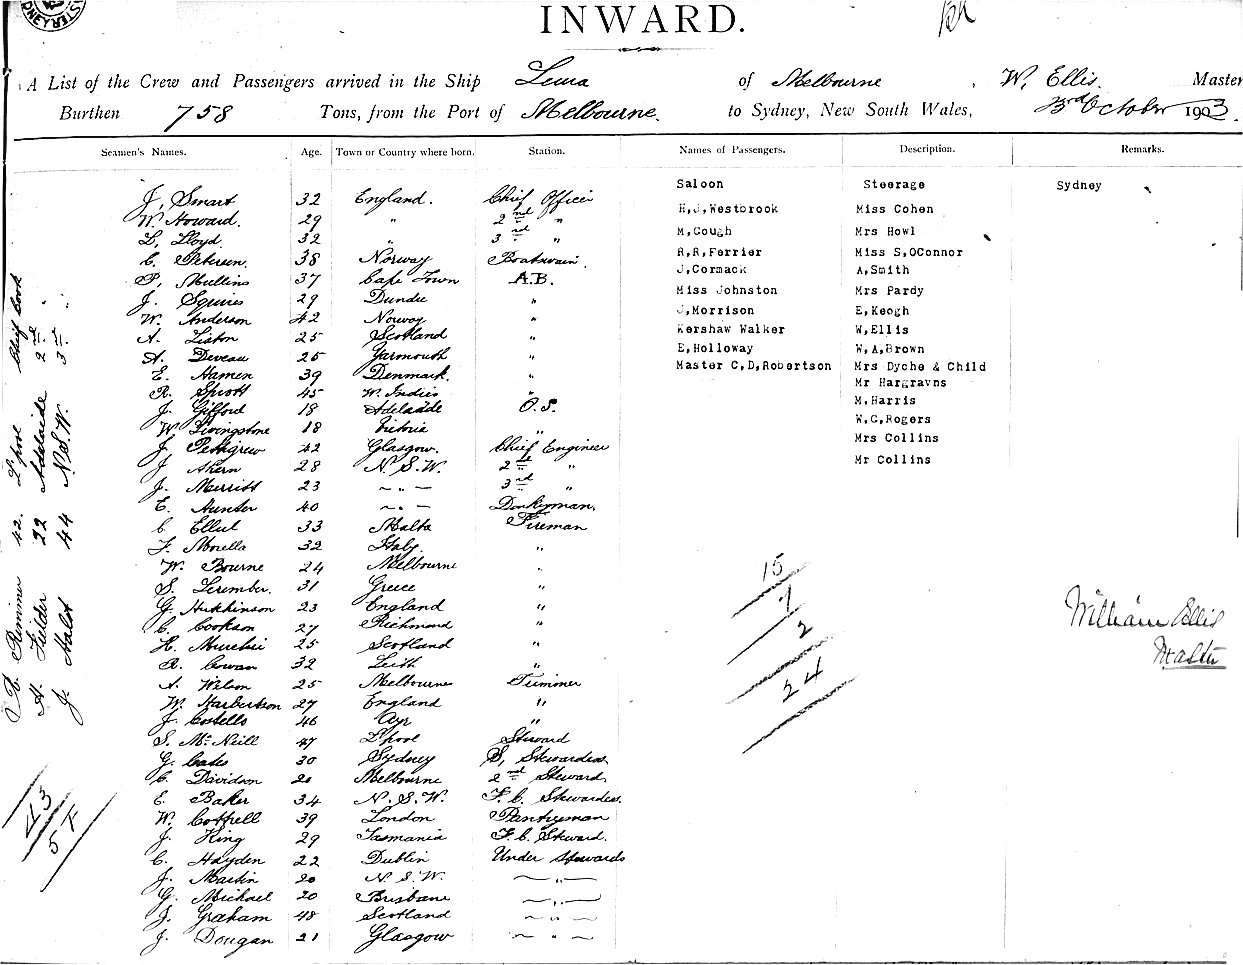 INWARD.
A List of the Crew and Passengers arrived in the Ship of Melbourne, W. Ellis. Master
Burthen 758 Tons, from the Port of Melbourne. to Sydney, New South Wales, 3rd October 1903.
Seamen's Names. Age. Town or Country where born. Station. Names of Passengers. Description. Remarks.
Saloon Steerage Sydney
J, Smart 32 England. Chief Officer
H,J,Westbrook Miss Cohen
W. Howard. 29 " 2nd "
M,Gough Mrs Howl
L, Lloyd. 32 " 3rd "
R,R,Ferrier Miss S,OConnor
C. Petersen. 38 Norway Boatswain.
J,Cormack A,Smith
P, Mullins 37 Cape Town A.B.
Miss Johnston Mrs Pardy
J. Squires 29 Dundee "
J,Morrison E,Keogh
W. Anderson 42 Norway "
Kershaw Walker W,Ellis
A. Liston 25 Scotland "
E,Holloway W,A,Brown
A. Deveau 25 Yarmouth "
Master C,D,Robertson Mrs Dyche & Child
E. Hamen 39 Denmark. "
Mr Hargravns
R. Sprott 45 W. Indies "
M,Harris
J. Gifford 18 Adelaide O.S.
W,G,Rogers
W. Livingstone 18 Victoria "
Mrs Collins
J. Pettigrew 42 Glasgow. Chief Engineer
Mr Collins
J. Ahern 28 N.S.W. 2nd "
J. Merritt 23 — " — 3rd "
E. Hunter 40 — " — Donkeyman,
C. Ellul 33 Malta Fireman
F. Morella 32 Italy. "
W. Bourne 24 Melbourne "
S. 31 Greece "
G. Hutchinson 23 England "
C. Cookson 27 Richmond "
H. Murchie 25 Scotland "
R. Cowan 32 Leith "
A. Wilson 25 Melbourne Trimmer
W. Harbertson 27 England "
J. Costello 46 Ayr "
S. McNeill 47 L'pool Steward
G. Cates 30 Sydney S, Stewardess
C. Davidson 20 Melbourne 2nd Steward
E. Baker 34 N.S.W. F.C. Stewardess.
W. Cottrell 39 London Pantryman
J. King 29 Tasmania F.C. Steward.
C. Hayden 22 Dublin Under Stewards
J. Martin 20 N.S.W. — " —
G. Michael 20 Brisbane — " —
J. Graham 48 Scotland — " —
J. Dougan 21 Glasgow — " —
R. Rimmer 42. L'pool Chief Cook
A. Fielder 22 Adelaide 2nd "
J. Holt 44 N.S.W. 3rd "
43
57
15
7
2
24
William Ellis
Master